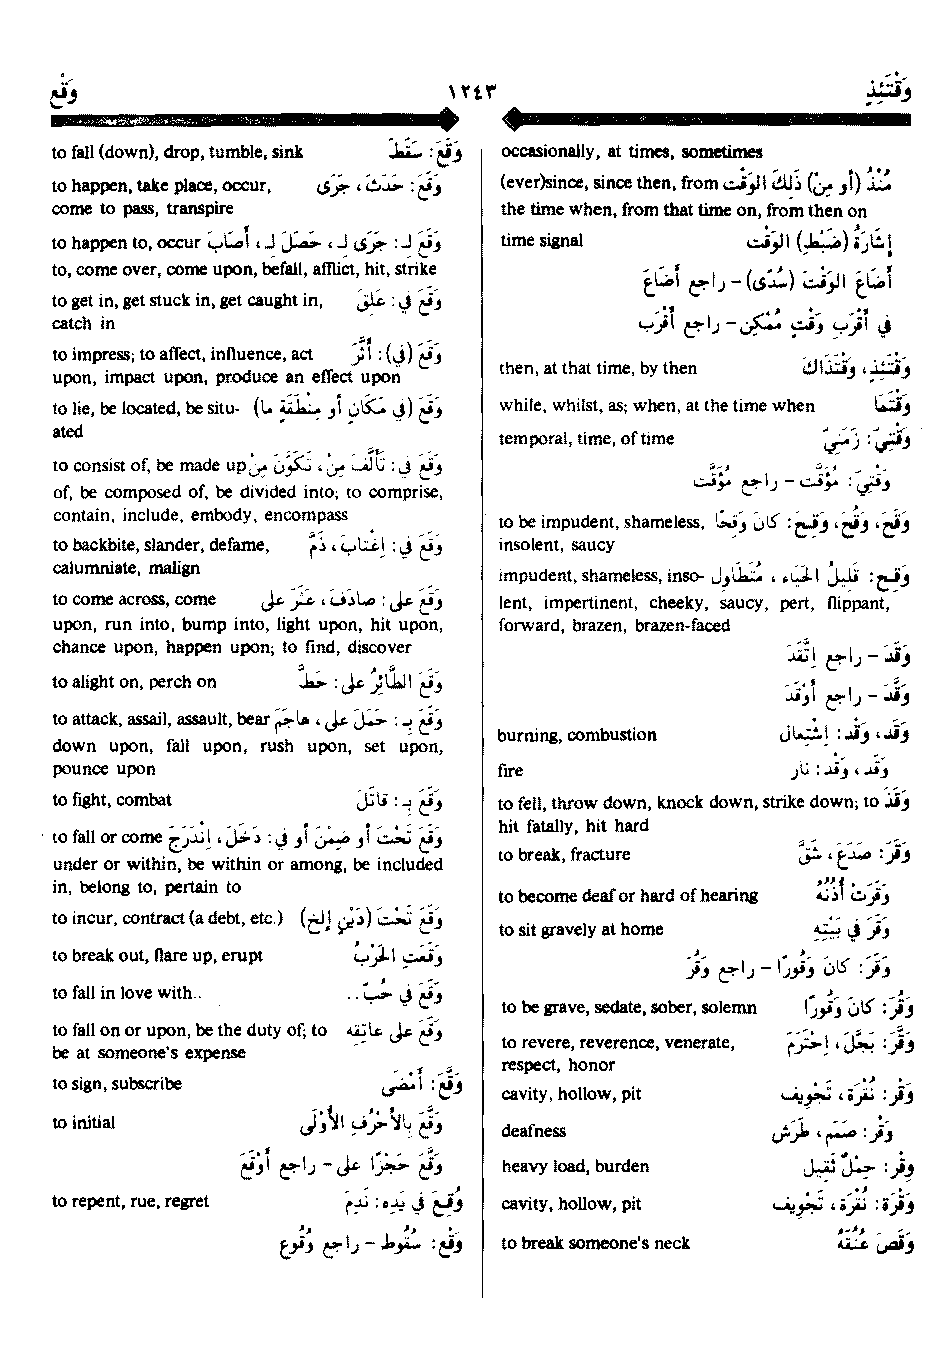 وَقْتَئِذٍ ١٢٤٣ وَقَع
occasionally, at times, sometimes
(ever)since, since then, from مُنْذُ (أو مِنْ) ذَلِكَ الوَقْت
the time when, from that time on, from then on
time signal إشَارَةُ (ضَبْطِ) الوَقْت
أضَاعَ الوَقْتَ (سُدًى) – راجع أضَاعَ
في أقْرَبِ وَقْتٍ مُمْكِن – راجع أقْرَب
then, at that time, by then وَقْتَئِذٍ، وَقْتَذَاكَ
while, whilst, as; when, at the time when وَقْتَمَا
temporal, time, of time وَقْتِيّ: زَمَنِيّ
وَقْتِيّ: مُؤَقَّت – راجع مُؤَقَّت
to be impudent, shameless, وَقُحَ، وَقَحَ، وَقِحَ: كانَ وَقِحًا
insolent, saucy
impudent, shameless, inso- وَقِح: قَلِيلُ الحَيَاء، مُتَطَاوِل
lent, impertinent, cheeky, saucy, pert, flippant,
forward, brazen, brazen-faced
وَقَدَ – راجع اِتَّقَدَ
وَقَّدَ – راجع أوْقَدَ
burning, combustion وَقَد، وَقْد: اِشْتِعَال
fire وَقَد، وَقْد: نَار
to fell, throw down, knock down, strike down; to وَقَذَ
hit fatally, hit hard
to break, fracture وَقَرَ: صَدَعَ، شَقَّ
to become deaf or hard of hearing وَقَرَتْ أُذُنُهُ
to sit gravely at home وَقَرَ في بَيْتِهِ
وَقَرَ: كَانَ وَقُورًا – راجع وَقُرَ
to be grave, sedate, sober, solemn وَقُرَ: كَانَ وَقُورًا
to revere, reverence, venerate, وَقَّرَ: بَجَّلَ، اِحْتَرَمَ
respect, honor
cavity, hollow, pit وَقْر: نُقْرَة، تَجْوِيف
deafness وَقْر: صَمَم، طَرَش
heavy load, burden وِقْر: حِمْلٌ ثَقِيل
cavity, hollow, pit وَقْرَة: نُقْرَة، تَجْوِيف
to break someone's neck وَقَصَ عُنُقَهُ
to fall (down), drop, tumble, sink وَقَعَ: سَقَطَ
to happen, take place, occur, وَقَعَ: حَدَثَ، جَرَى
come to pass, transpire
to happen to, occur وَقَعَ لـ: جَرَى لـ، حَصَلَ لـ، أَصَابَ
to, come over, come upon, befall, afflict, hit, strike
to get in, get stuck in, get caught in, وَقَعَ في: عَلِقَ
catch in
to impress; to affect, influence, act وَقَعَ (في): أَثَّرَ
upon, impact upon, produce an effect upon
to lie, be located, be situ- وَقَعَ (في مَكَانٍ أو مِنْطَقَةٍ ما)
ated
to consist of, be made up وَقَعَ في: تَأَلَّفَ مِنْ، تَكَوَّنَ مِنْ
of, be composed of, be divided into; to comprise,
contain, include, embody, encompass
to backbite, slander, defame, وَقَعَ في: اِغْتَابَ، ذَمَّ
calumniate, malign
to come across, come وَقَعَ على: صَادَفَ، عَثَرَ على
upon, run into, bump into, light upon, hit upon,
chance upon, happen upon; to find, discover
to alight on, perch on وَقَعَ الطَّائِرُ على: حَطَّ
to attack, assail, assault, bear وَقَعَ بِـ: حَمَلَ على، هاجَمَ
down upon, fall upon, rush upon, set upon,
pounce upon
to fight, combat وَقَعَ بِـ: قَاتَلَ
to fall or come وَقَعَ تَحْتَ أو ضِمْنَ أو في: دَخَلَ، اِنْدَرَجَ
under or within, be within or among, be included
in, belong to, pertain to
to incur, contract (a debt, etc.) وَقَعَ تَحْتَ (دَيْنٍ إلخ)
to break out, flare up, erupt وَقَعَتِ الحَرْبُ
to fall in love with.. وَقَعَ في حُبّ..
to fall on or upon, be the duty of; to وَقَعَ على عَاتِقِهِ
be at someone's expense
to sign, subscribe وَقَّعَ: أَمْضَى
to initial وَقَّعَ بِالأَحْرُفِ الأُوْلَى
وَقَّعَ حَجْزًا على – راجع أَوْقَعَ
to repent, rue, regret وُقِعَ في يَدِهِ: نَدِمَ
وَقْع: سُقُوط – راجع وُقُوع